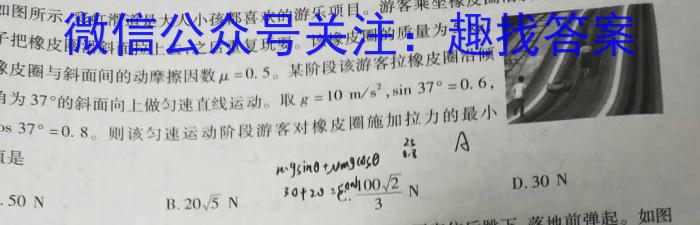 如图所示，
是大人小孩都喜欢的游乐项目。游客乘坐橡皮圈
微信公众号关注：趣找答案
子把橡皮圈
橡皮圈的质量为
象皮圈与斜面间的动摩擦因数μ=0.5。某阶段该游客拉橡皮圈沿倾
角为37°的斜面向上做匀速直线运动。取g=10 m/s²,sin 37°=0.6,
os 37°=0.8。则该匀速运动阶段游客对橡皮圈施加拉力的最小
值是
A
mgsinθ+μmgcosθ
30+20=
.50 N
B. 20√5 N
C. 100√2/3 N
D. 30 N
落地前弹起。如图